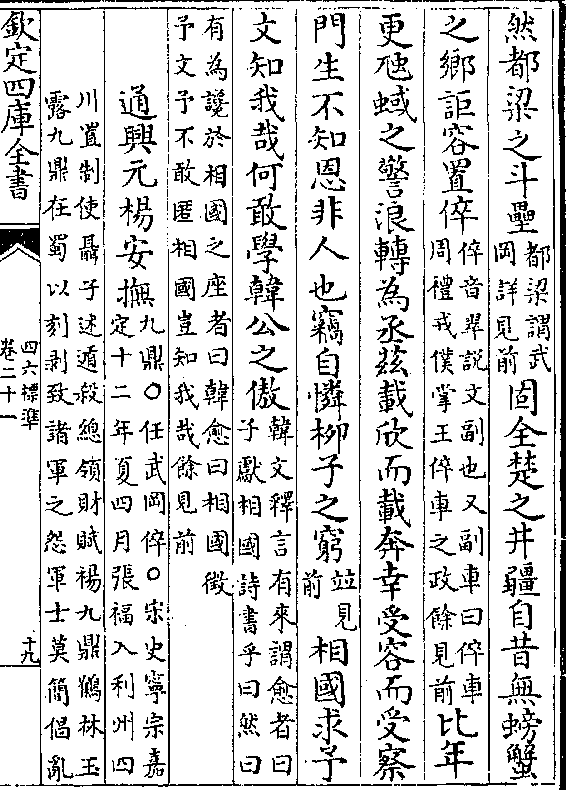 然都梁之斗壘都梁謂武岡詳見前固全楚之井疆自昔無螃蟹
之鄉詎容置倅倅音翠説文副也又副車曰倅車周禮戎僕掌王倅車之政餘見前比年
更虺蜮之警浪轉為丞兹載欣而載奔幸受容而受察
門生不知恩非人也竊自憐柳子之窮竝見前相國求予
文知我哉何敢學韓公之傲韓文釋言有來謂愈者曰子獻相國詩書乎曰然曰
有為讒於相國之座者曰韓愈曰相國徵予文予不敢匿相國豈知我哉餘見前
通興元楊安撫九鼎○任武岡倅○宋史寧宗嘉定十二年夏四月張福入利州四
川置制使聶子述遁殺總領財賦楊九鼎鶴林玉露九鼎在蜀以刻剥致諸軍之怨軍士莫簡倡亂
欽定四庫全書
四六標準
卷二十一
十九